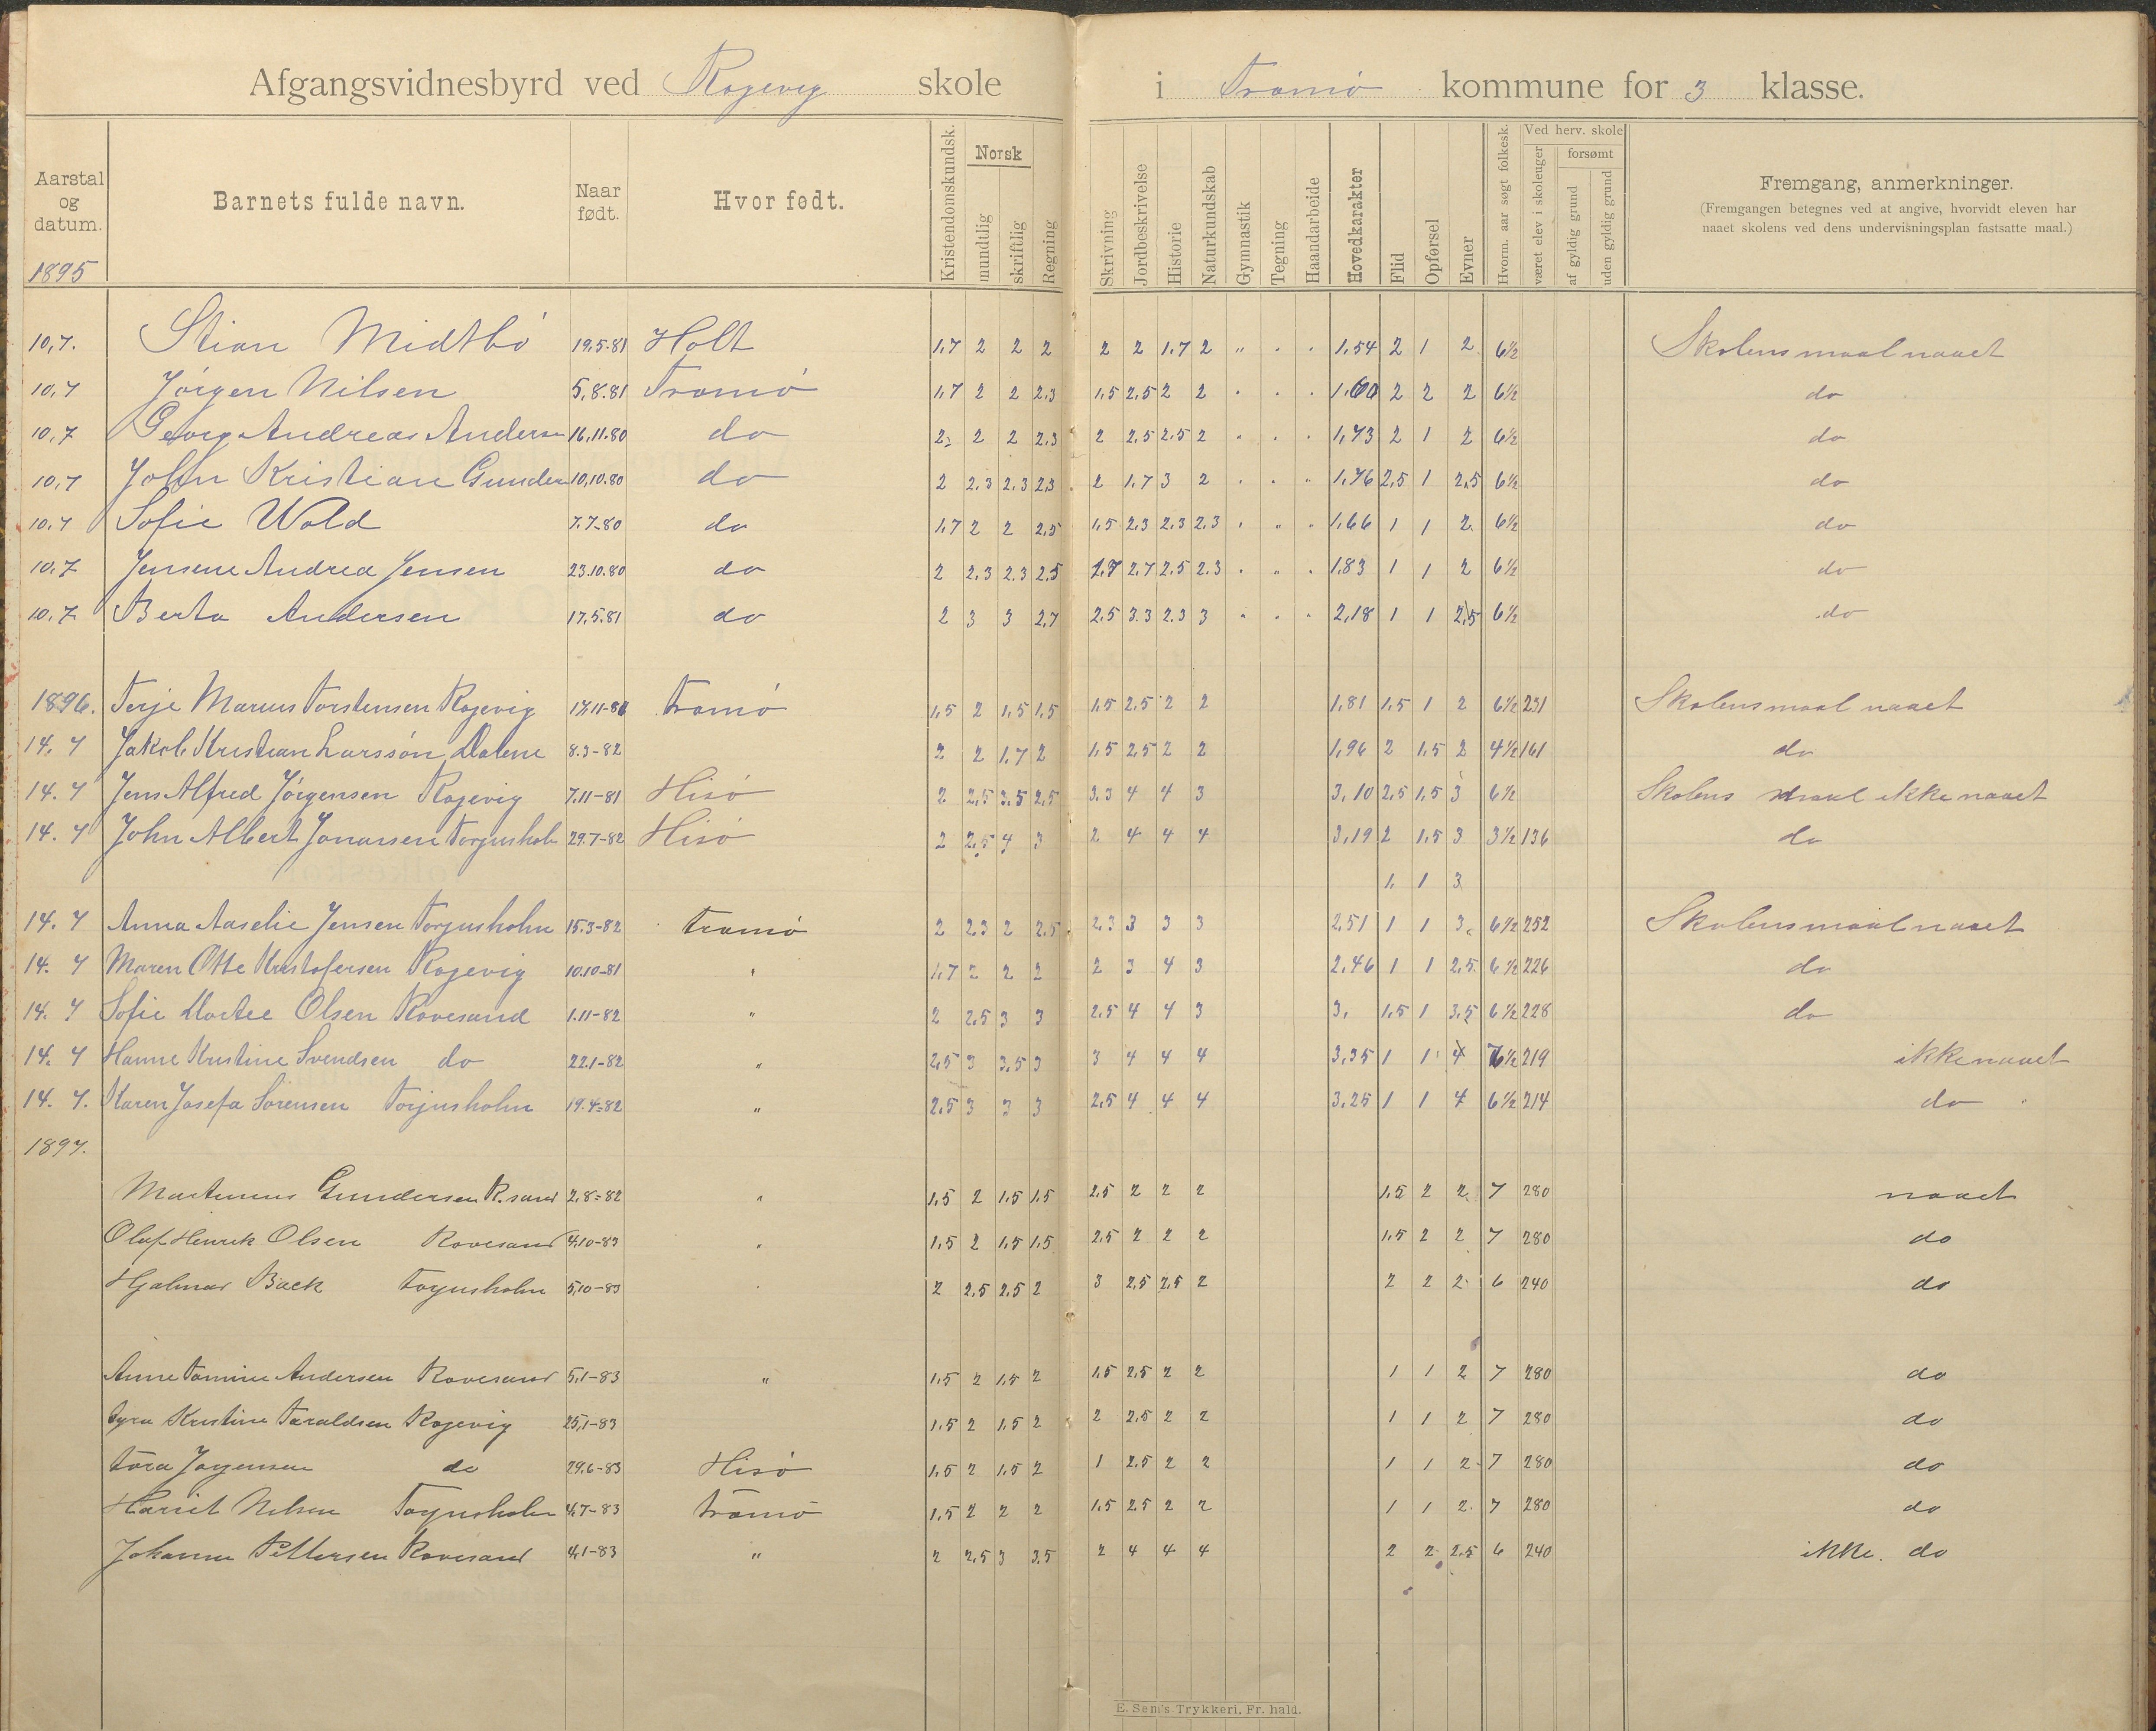 Afgangsvidnesbyrd ved Rogevig skole i Tromø kommune for 3 klasse.
Aarstal og datum. Barnets fulde navn. Naar født. Hvor født. Kristendomskundsk. Norsk mundtlig skriftlig Regning Skrivning Jordbeskrivelse Historie Naturkundskab Gymnastik Tegning Haandarbeide Hovedkarakter Flid Opførsel Evner Hvorm. aar søgt folkesk. Ved herv. skole været elev i skoleuger forsømt af gyldig grund uden gyldig grund Fremgang, anmerkninger.
(Fremgangen betegnes ved at angive, hvorvidt eleven har
naaet skolens ved dens undervisningsplan fastsatte maal.)
1895
10,7. Stian Midtbö 19,5-81 Holt 1,7 2 2 2 2 2 1,7 2 " . . 1,54 2 1 2 6½ Skolens maal naaet
10,7 Jörgen Nilsen 5,8.81 Tromö 1,7 2 2 2,3 1,5 2,5 2 2 . . . 1,60 2 2 2 6½ do
10,7 Georg Andreas Andersen 16,11.80 do 2 2 2 2,3 2 2,5 2,5 2 . . . 1,73 2 1 2 6½ do
10,7 John Kristian Gunder 10,10.80 do 2 2.3 2.3 2,3 2 1,7 3 2 . . " 1,76 2,5 1 2,5 6½ do
10,7 Sofie Wold 7.7-80 do 1,7 2 2 2,5 1,5 2,3 2,3 2,3 . " . 1,66 1 1 2 6½ do
10,7 Jensene Andrea Jensen 23.10.80 do 2 2,3 2.3 2,5 2,7 2,7 2,5 2.3 . " . 1,83 1 1 2 6½ do
10,7 Berta Andersen 17,5.81 do 2 3 3 2,7 2,5 3.3 2.3 3 . . . 2,18 1 1 2,5 6½ do
1896. Terje Marius Torstensen Rogevig 17,11-81 Tromö 1,5 2 1,5 1,5 1,5 2,5 2 2 1,81 1,5 1 2 6½ 231 Skolens maal naaet
14.7 Jakob Kristian Larssön Dalene 8.3-82 2 2 1,7 2 1,5 2,5 2 2 1,96 2 1,5 2 4½ 161 do
14.7 Jens Alfred Jörgensen Rogevig 7.11-81 Hisö 2 2,5 3,5 2,5 3,3 4 4 3 3,10 2,5 1,5 3 6½ Skolens maal ikke naaet
14.7 John Albert Jonassen Torjusholm 29.7-82 Hisö 2 2,5 4 3 2 4 4 4 3,19 2 1,5 3 3½ 136 do
1. 1 3
14.7 Anna Aaselie Jensen Torjusholm 15.3-82 Tromö 2 2,3 2 2,5 2,3 3 3 3 2,51 1 1 3 6½ 252 Skolens maal naaet
14.7 Maren Otte Kristofersen Rogevig 10.10-81 " 1,7 2 2 2 2 3 4 3 2,46 1 1 2,5 6½ 226 do
14.7 Sofie Dortee Olsen Rovesand 1.11-82 " 2 2,5 3 3 2,5 4 4 3 3, 1,5 1 3,5 6½ 228 do
14.7 Hanne Kristine Svendsen do 22.1-82 " 2,5 3 3,5 3 3 4 4 4 3,35 1 1 4 6½ 219 ikke naaet
14.7. Karen Josefa Sörensen Torjusholm 19.4-82 " 2,5 3 3 3 2,5 4 4 4 3,25 1 1 4 6½ 214 do
1897.
Martinius Gundersen R.sand 2,8-82 " 1,5 2 1,5 1,5 2,5 2 2 2 1,5 2 2 7 280 naaet
Oluf Henrik Olsen Rovesand 4,10-83 " 1,5 2 1,5 1,5 2,5 2 2 2 1,5 2 2 7 280 do
Hjalmar Back Torjusholm 5,10-83 . 2 2,5 2,5 2 3 2,5 2,5 2 2 2 2 6 240 do
Anne Tomine Andersen Rovesand 5,1-83 " 1,5 2 1,5 2 1,5 2,5 2 2 1 1 2 7 280 do
Tyra Kristine Taraldsen Rogevig 25,1-83 1,5 2 1,5 2 2 2,5 2 2 1 1 2 7 280 do
Tora Jörgensen do 29,6-83 Hisö 1,5 2 1,5 2 1 2,5 2 2 1 1 2 7 280 do
Hariet Nelsen Torjusholm 4,7-83 Tromö 1,5 2 2 2 1,5 2,5 2 2 1 1 2 7 280 do
Johanne Pettersen Rovesand 4,1-83 " 2 2,5 3 3,5 2 4 4 4 2 2 2,5 6 240 ikke. do
E. Sem's Trykkeri, Fr. hald.